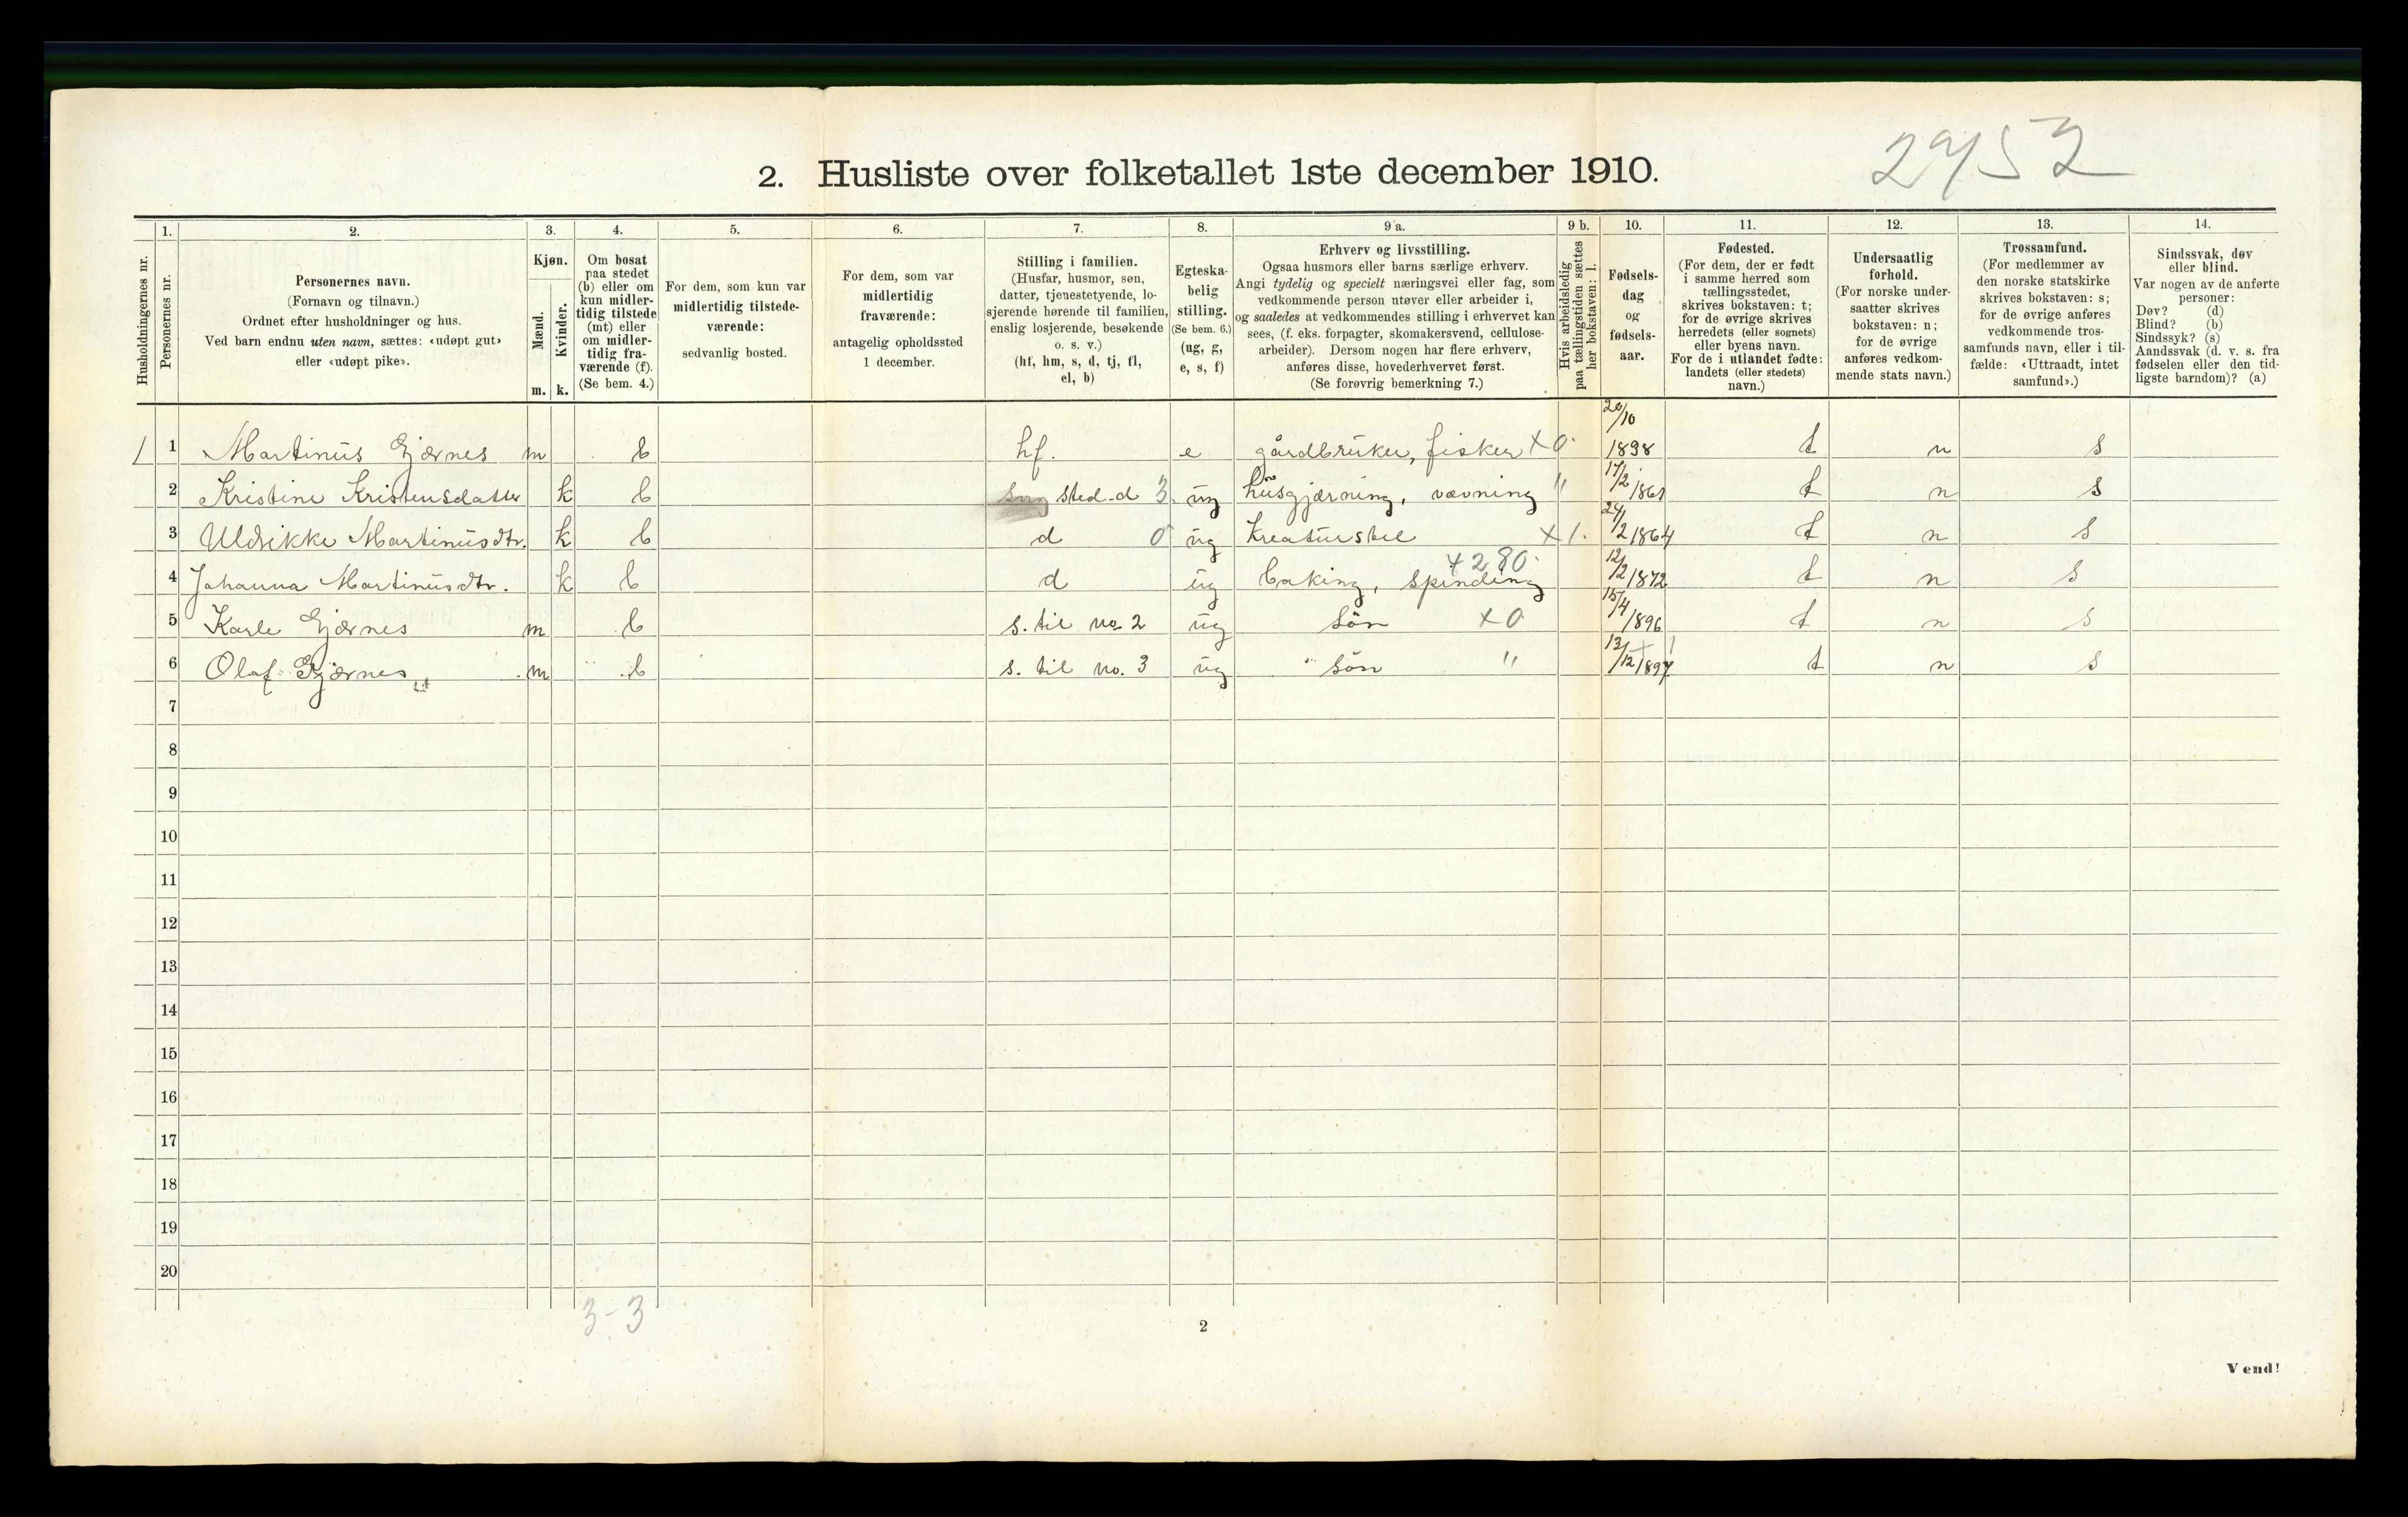 29/52
2. Husliste over folketallet 1ste december 1910.
Husholdningernes nr.
1.
Personernes nr.
2.
Personernes navn.
(Fornavn og tilnavn.)
Ordnet efter husholdninger og hus.
Ved barn endnu uten navn, sættes: «udøpt gut»
eller «udøpt pike».
3.
Kjøn.
Mænd.
Kvinder.
m. k.
4.
Om bosat
paa stedet
(b) eller om
kun midler-
tidig tilstede
(mt) eller
om midler-
tidig fra-
værende (f).
(Se bem. 4.)
5.
For dem, som kun var
midlertidig tilstede-
værende:
sedvanlig bosted.
6.
For dem, som var
midlertidig
fraværende:
antagelig opholdssted
1 december.
7.
Stilling i familien.
(Husfar, husmor, søn,
datter, tjenestetyende, lo-
sjerende hørende til familien,
enslig losjerende, besøkende
o. s. v.)
(hf, hm, s, d, tj, fl,
el, b)
8.
Egteska-
belig
stilling.
(Se bem. 6.)
(ug, g,
e, s, f)
9 a.
Erhverv og livsstilling.
Ogsaa husmors eller barns særlige erhverv.
Angi tydelig og specielt næringsvei eller fag, som
vedkommende person utøver eller arbeider i,
og saaledes at vedkommendes stilling i erhvervet kan
sees, (f. eks. forpagter, skomakersvend, cellulose-
arbeider). Dersom nogen har flere erhverv,
anføres disse, hovederhvervet først.
(Se forøvrig bemerkning 7.)
9 b.
Hvis arbeidsledig
paa tællingstiden sættes
her bokstaven: l.
10.
Fødsels-
dag
og
fødsels-
aar.
11.
Fødested.
(For dem, der er født
i samme herred som
tællingsstedet,
skrives bokstaven: t;
for de øvrige skrives
herredets (eller sognets)
eller byens navn.
For de i utlandet fødte:
landets (eller stedets)
navn.)
12.
Undersaatlig
forhold.
(For norske under-
saatter skrives
bokstaven: n;
for de øvrige
anføres vedkom-
mende stats navn.)
13.
Trossamfund.
(For medlemmer av
den norske statskirke
skrives bokstaven: s;
for de øvrige anføres
vedkommende tros-
samfunds navn, eller i til-
fælde: «Uttraadt, intet
samfund».)
14.
Sindssvak, døv
eller blind.
Var nogen av de anførte
personer:
Døv? (d)
Blind? (b)
Sindssyk? (s)
Aandssvak (d. v. s. fra
fødselen eller den tid-
ligste barndom)? (a)
1 1 Martinus Gjærnes m b hf. e gårdbruker, fisker x 0 20/10 1838 t n s
2 Kristine Kristensdatter k b sted-d 3 ug husgjærning, vævning " 17/2 1861 t n s
3 Uldrikke Martinusdtr. k b d 0 ug Kreaturstel x 1. 24/2 1864 t n s
4 Johanna Martinusdtr. k b d ug baking, spinding x 280. 12/2 1872 t n s
5 Karle Gjærnes m b s. til no 2 ug søn x 0 15/4 1896 t n s
6 Olaf Gjærnes m b s. til no. 3 ug søn " 12/12 1897 t n s
7
8
9
10
11
12
13
14
15
16
17
18
19
20
3-3
2
Vend!